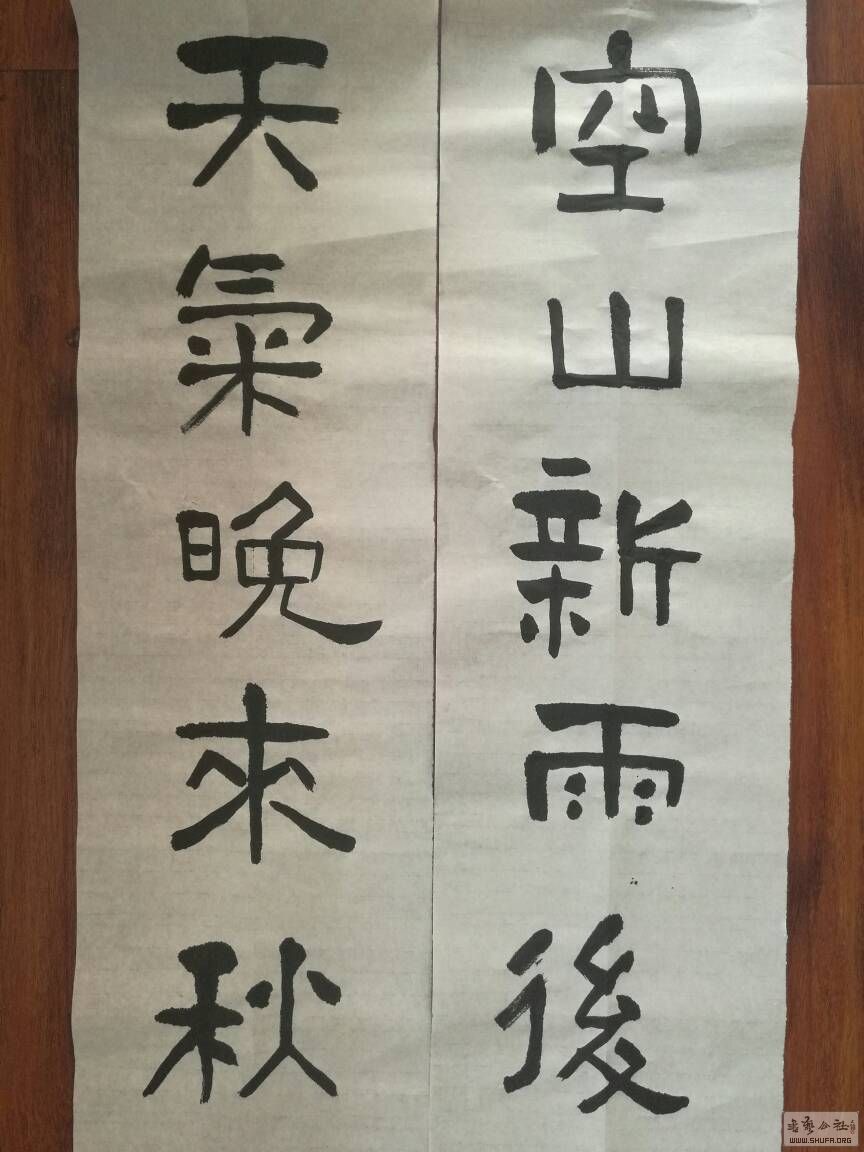 空山新雨後
天氣晚來秋
WWW.SHUFA.ORG